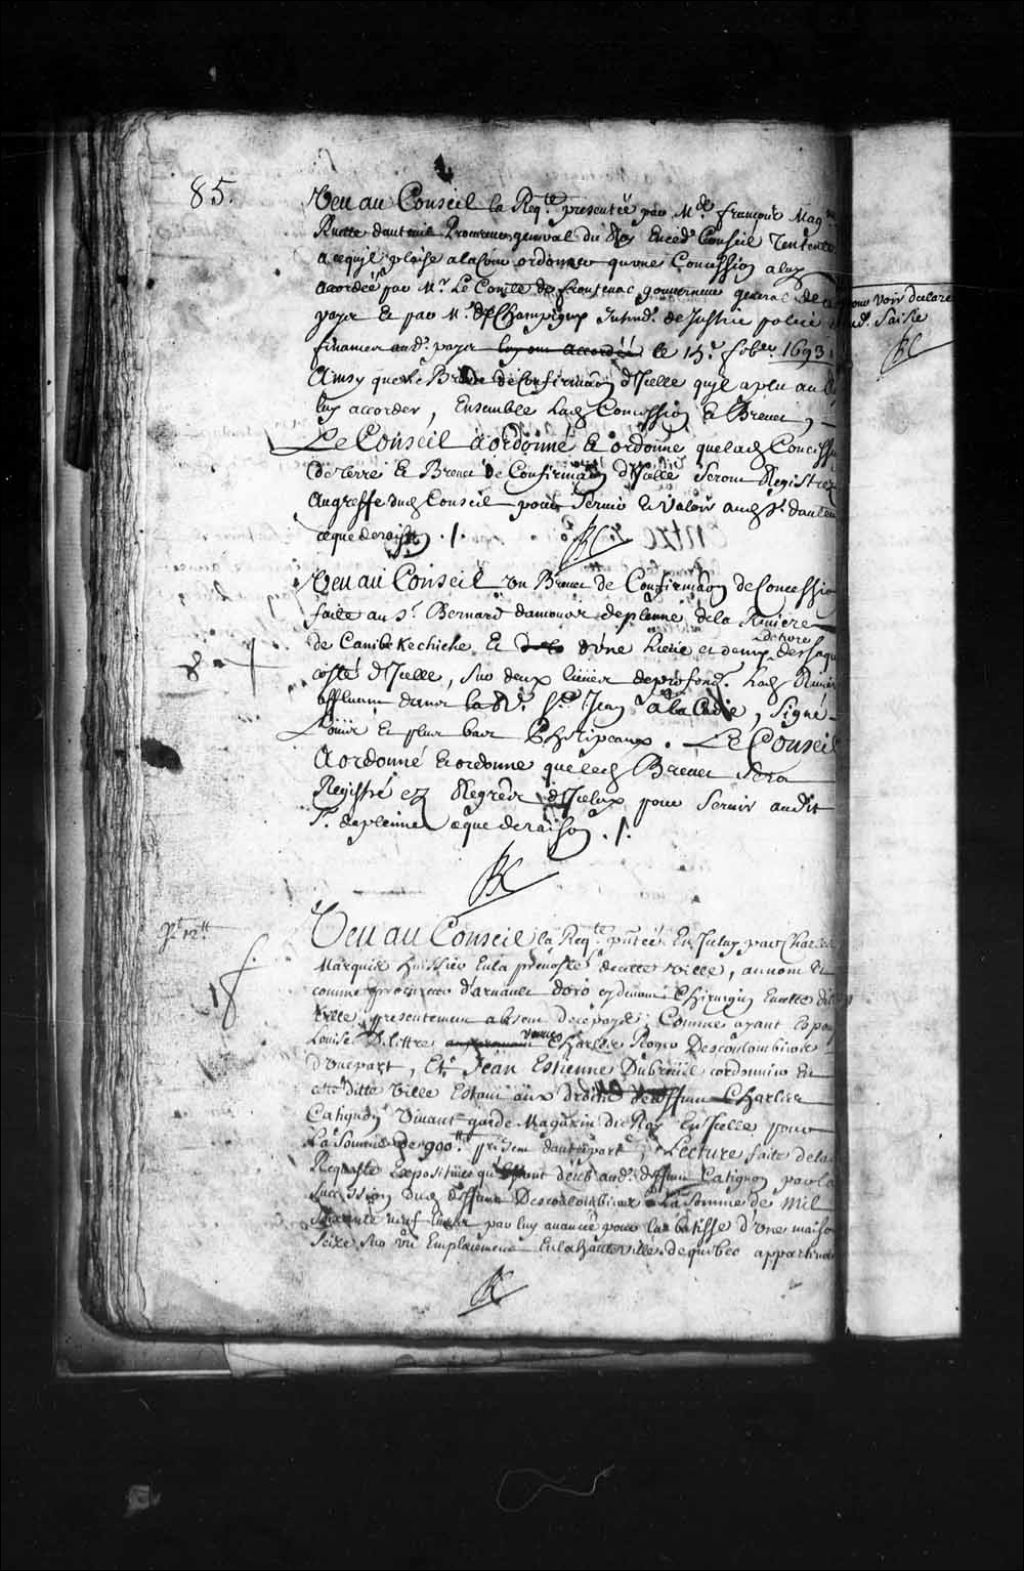 85.
Veu au Conseil la Req.te presentée par M.re françois Mag.ne
Ruette dauteuil Procureur general du Roy En ced.t Conseil Tendante
a cequ'il plaise a la Cour ordonner qu'une Concession a luy
acordée par M.r Le Comte de frontenac gouverneur general de ce
payis Et par M.r De Champigny Intend.t de Justice police et
finances aud.t payis luy ont accordéé le 15.e feb.er 1693.
Ainsy que le Brevet de Confirmaõn d'Icelle qu'il a plu au Roy
luy accorder, Ensemble lad. Concession & Brevet,
Le Conseil a ordonné Et ordonne que lad. Concession
de terre Et Brevet de Confirmaõn d'Icelle Seront Registrez
Au greffe dud. Conseil pour Servir et valoir aud. S.r dauteuil
ceque de raison ./.
Veu au Conseil un Brevet de Confirmaõn de Concession
faite au S.r Bernard damours deplenne de la Riviere
de Canibekechiche Et d'une lieüe et demye de terre de chaque
costé d'Icelle, Sur deux lieües de profond.r lad. Riviere
affluante dans la R. S.t Jean a la Cadie, Signé
Loüis Et plus bas Phelipeaux. Le Conseil
A ordonné Et ordonne que led. Brevet Sera
Registré ez Regrës d'Iceluy pour Servir audit
S.r deplenne ceque de raison ./.
Veu au Conseil la Req.te pñtée En Iceluy par Charles
Marquis huissier En la prevosté decette ville, au nom Et
comme procureur d'arnault doro cydevant Chirurgien En cette ditte
Ville presentement absent de ce payis; Comme ayant Epousé
Louise D'littre veuve Charles Roger Descoulombiers
d'une part, Et Jean Estienne Dubreüil cordonnier En
cette ditte Ville Estant aux droits de deffunt Charles
Catignon Vivant garde Magazin du Roy En Icelle pour
La Somme de 900.tt pr.sent dautre part, Lecture faite de la
Requeste Expositive qu'Estant deub aud. deffunt Catignon par la
Succession dud. deffunt Descoulombiers La Somme de Mil
Soixante neuf livres par luy avancée pour la bâtisse d'une maison
Seize Sur un Emplacement En la haute ville de quebec appartenant
pour voir declarer
lad. Saisie